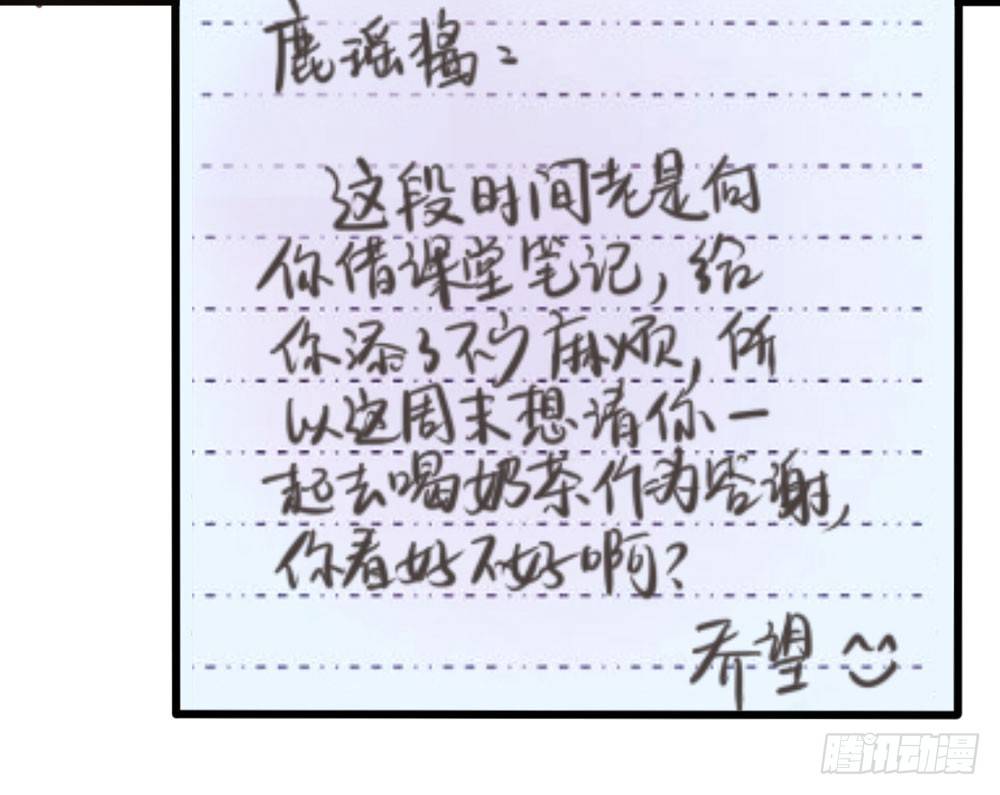 鹿瑶酱：
这段时间老是向
你借课堂笔记，给
你添了不少麻烦，所
以这周末想请你一
起去喝奶茶作为答谢，
你看好不好啊？
乔望
腾讯动漫